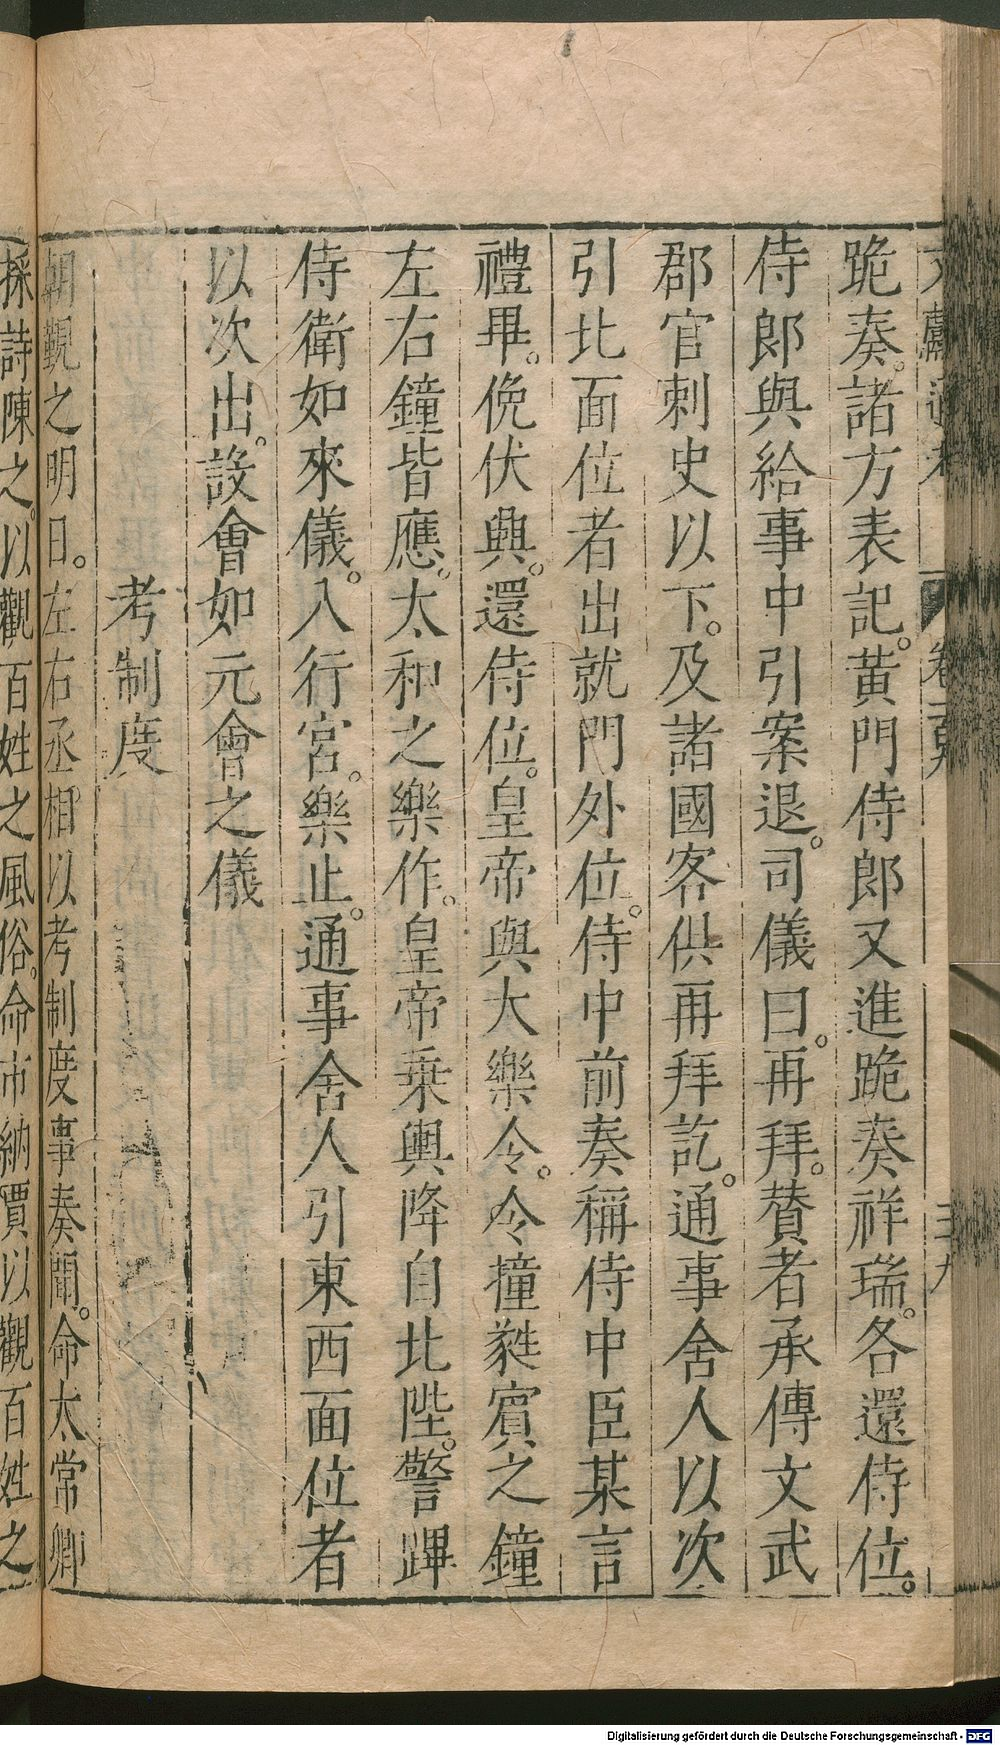 跪奏。諸方表記。黃門侍郎又進跪奏祥瑞。各還侍位。
侍郎與給事中引案退。司儀曰。再拜。贊者承傳文武
郡官刺史以下。及諸國客供再拜訖。通事舍人以次
引北面位者出就門外位。侍中前奏稱侍中臣某言
禮畢。俛伏興。還侍位。皇帝與大樂令。令撞蕤賓之鐘
左右鐘皆應。太和之樂作。皇帝乘輿降自北陛。警蹕
侍衛如來儀。入行宮。樂止。通事舍人引東西面位者
以次出。設會如元會之儀
考制度
朝覲之明日。左右丞相以考制度事奏聞。命太常卿
採詩陳之。以觀百姓之風俗。命市納賈以觀百姓之
Digitalisierung gefördert durch die Deutsche Forschungsgemeinschaft - DFG